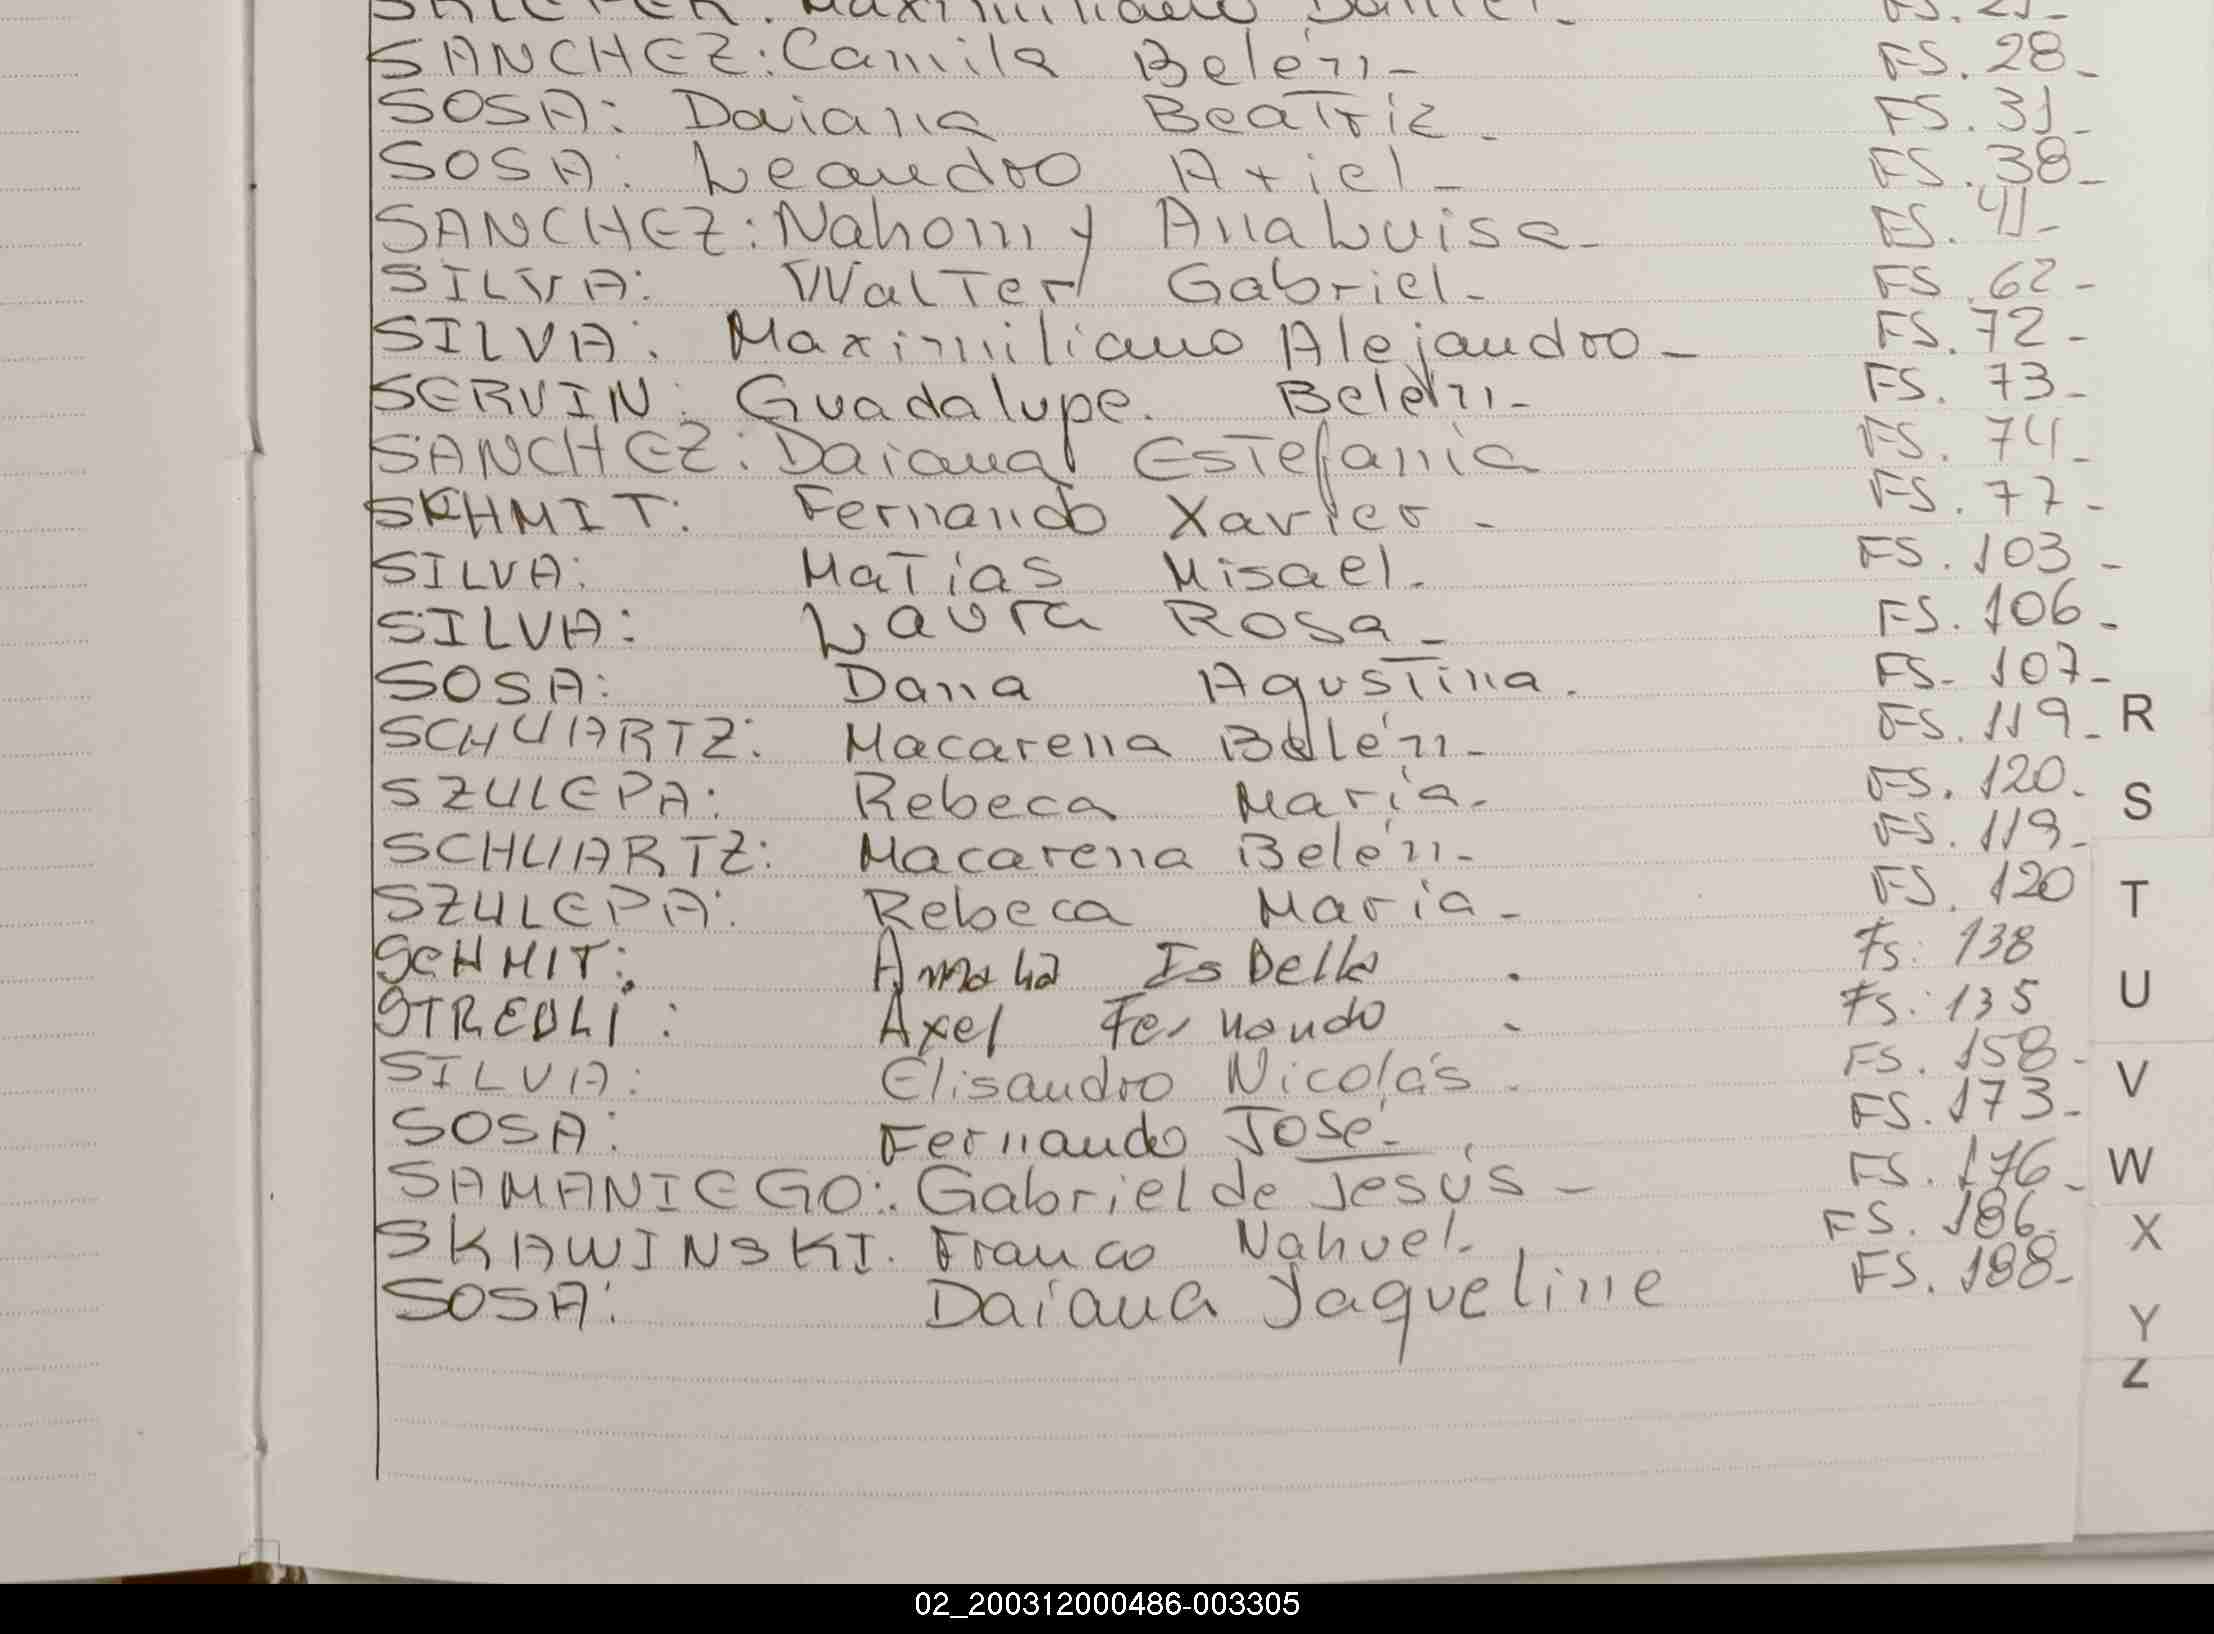 Maximiliano Daniel.
SANCHEZ: Camila Belén- FS. 28-
SOSA: Daiana Beatriz. FS. 31-
SOSA: Leandro Ariel- FS. 38-
SANCHEZ: Nahomy Ana Luisa- FS. 41-
SILVA: Walter Gabriel- FS. 62-
SILVA: Maximiliano Alejandro- FS. 72-
SERVIN: Guadalupe. Belén- FS. 73-
SANCHEZ: Daiana Estefania FS. 74-
SKHMIT: Fernando Xavier- FS. 77-
SILVA: Matías Misael. FS. 103-
SILVA: Laura Rosa- FS. 106-
SOSA: Dana Agustina. FS- 107-
SCHUARTZ: Macarena Belén- FS. 119-
R
SZULEPA: Rebeca María- FS. 120.
S
SCHUARTZ: Macarena Belén- FS. 119-
SZULEPA: Rebeca María- FS. 120
T
SCHMIT: Isbella. Fs: 138
U
Axel Fernando. Fs: 135
SILVA: Elisandro Nicolás. FS. 158-
V
SOSA: Fernando José- FS. 173-
SAMANIEGO: Gabriel de Jesús- FS. 176-
W
SKAWINSKI. Franco Nahuel- FS. 186.
X
SOSA: Daiana Jaqueline FS. 188-
Y
Z
02_200312000486-003305